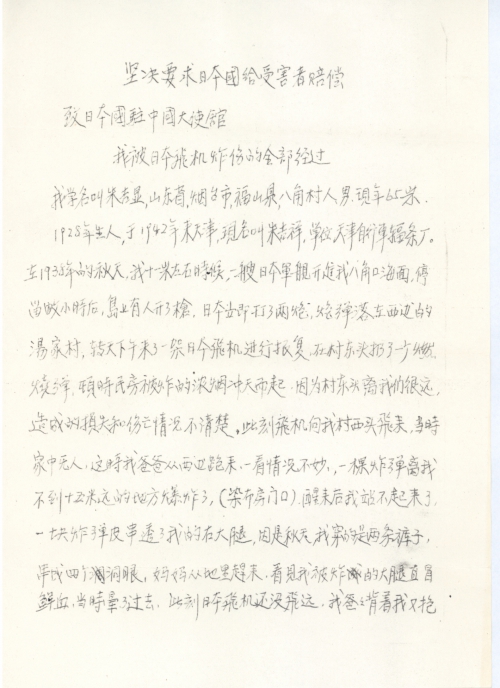 坚决要求日本國给受害者赔偿
致日本國駐中國大使館
我被日本飛机炸伤的全部经过
我学名叫朱吉显,山东省,烟台市,福山県,八角村人男.現年65米.
1928年生人,于1942年来天津,現名叫朱吉祥,單位天津自行車辐条厂。
在1938年的秋天,我十米左右時候,一艘日本軍艦开進我八角口海面,停
留数小時后,島上有人开了槍,日本立即打了两炮,炮弹落在西边的
湯家村,转天下午来了一架日本飛机進行报复,在村东头扔了一个燃
燒弹,頓時民房被炸的浓烟冲天而起.因为村东头离我們很远,
造成的損失和伤亡情况不清楚,此刻飛机向我村西头飛来,当時
家中无人,这時我爸爸从西边跑来,一看情况不妙,一棵炸弹离我
不到十五米远的地方爆炸了,(染布房门口).醒来后我站不起来了,
一块炸弹皮串透了我的右大腿,因是秋天我穿的是两条裤子,
串成四个洞眼,妈妈从地里赶来,看見我被炸的大腿直冒
鲜血,当時晕了过去,此刻日本飛机还没飛远,我爸爸背着我又抱